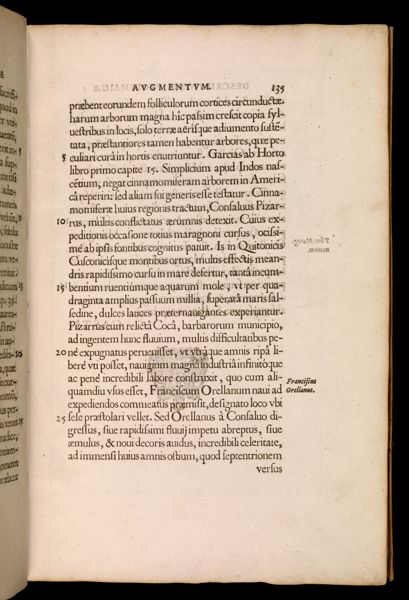 AVGMENTVM. 135
præbent eorundem folliculorum cortices circunductæ.
harum arborum magna hîc passim crescit copia syl-
uestribus in locis, solo terræ aërisque adiumento susté-
tata, præstantiores tamen habentur arbores, quæ pe-
5 culiari cura in hortis enutriuntur. Garcias ab Horto
libro primo capite 15. Simplicium apud Indos nas-
cétium, negat cinnamomiferam arborem in Ameri-
câ reperiri: sed aliam sui generis esse testatur. Cinna-
momiferæ huius regionis tractum, Consaluus Pizar-
10 rus, multis conflictatus ærumnis detexit. Cuius ex-
peditionis occasione totius maragnoni cursus, ocissi-
mè ab ipsis fontibus cognitus patuit. Is in Quitonicis
Cusconicisque montibus ortus, multis effectis mean-
dris rapidissimo cursu in mare defertur, tantâ incum-
15 bentium ruentiúmque aquarum mole, vt per qua-
draginta amplius passuum millia, superatâ maris sal-
sedine, dulces latices præternauigantes experiantur.
Pizarrus cum relictâ Cocâ, barbarorum municipio,
ad ingentem hunc fluuium, multis difficultatibus pe-
20 nè expugnatus peruenisset, vt vtráque amnis ripâ li-
berè vti posset, nauigium magnâ industriâ infinito que
ac penè incredibili labore construxit, quo cum ali-
quamdiu vsus esset, Franciscum Orellanum naui ad
expediendos commeatus præmisit, designato loco vbi
25 sese præstolari vellet. Sed Orellanus à Consaluo di-
gressus, siue rapidissimi fluuij impetu abreptus, siue
æmulus, & noui decoris auidus, incredibili celeritate,
ad immensi huius amnis ostium, quod septentrionem
versus
Franciscus
Orellanus.